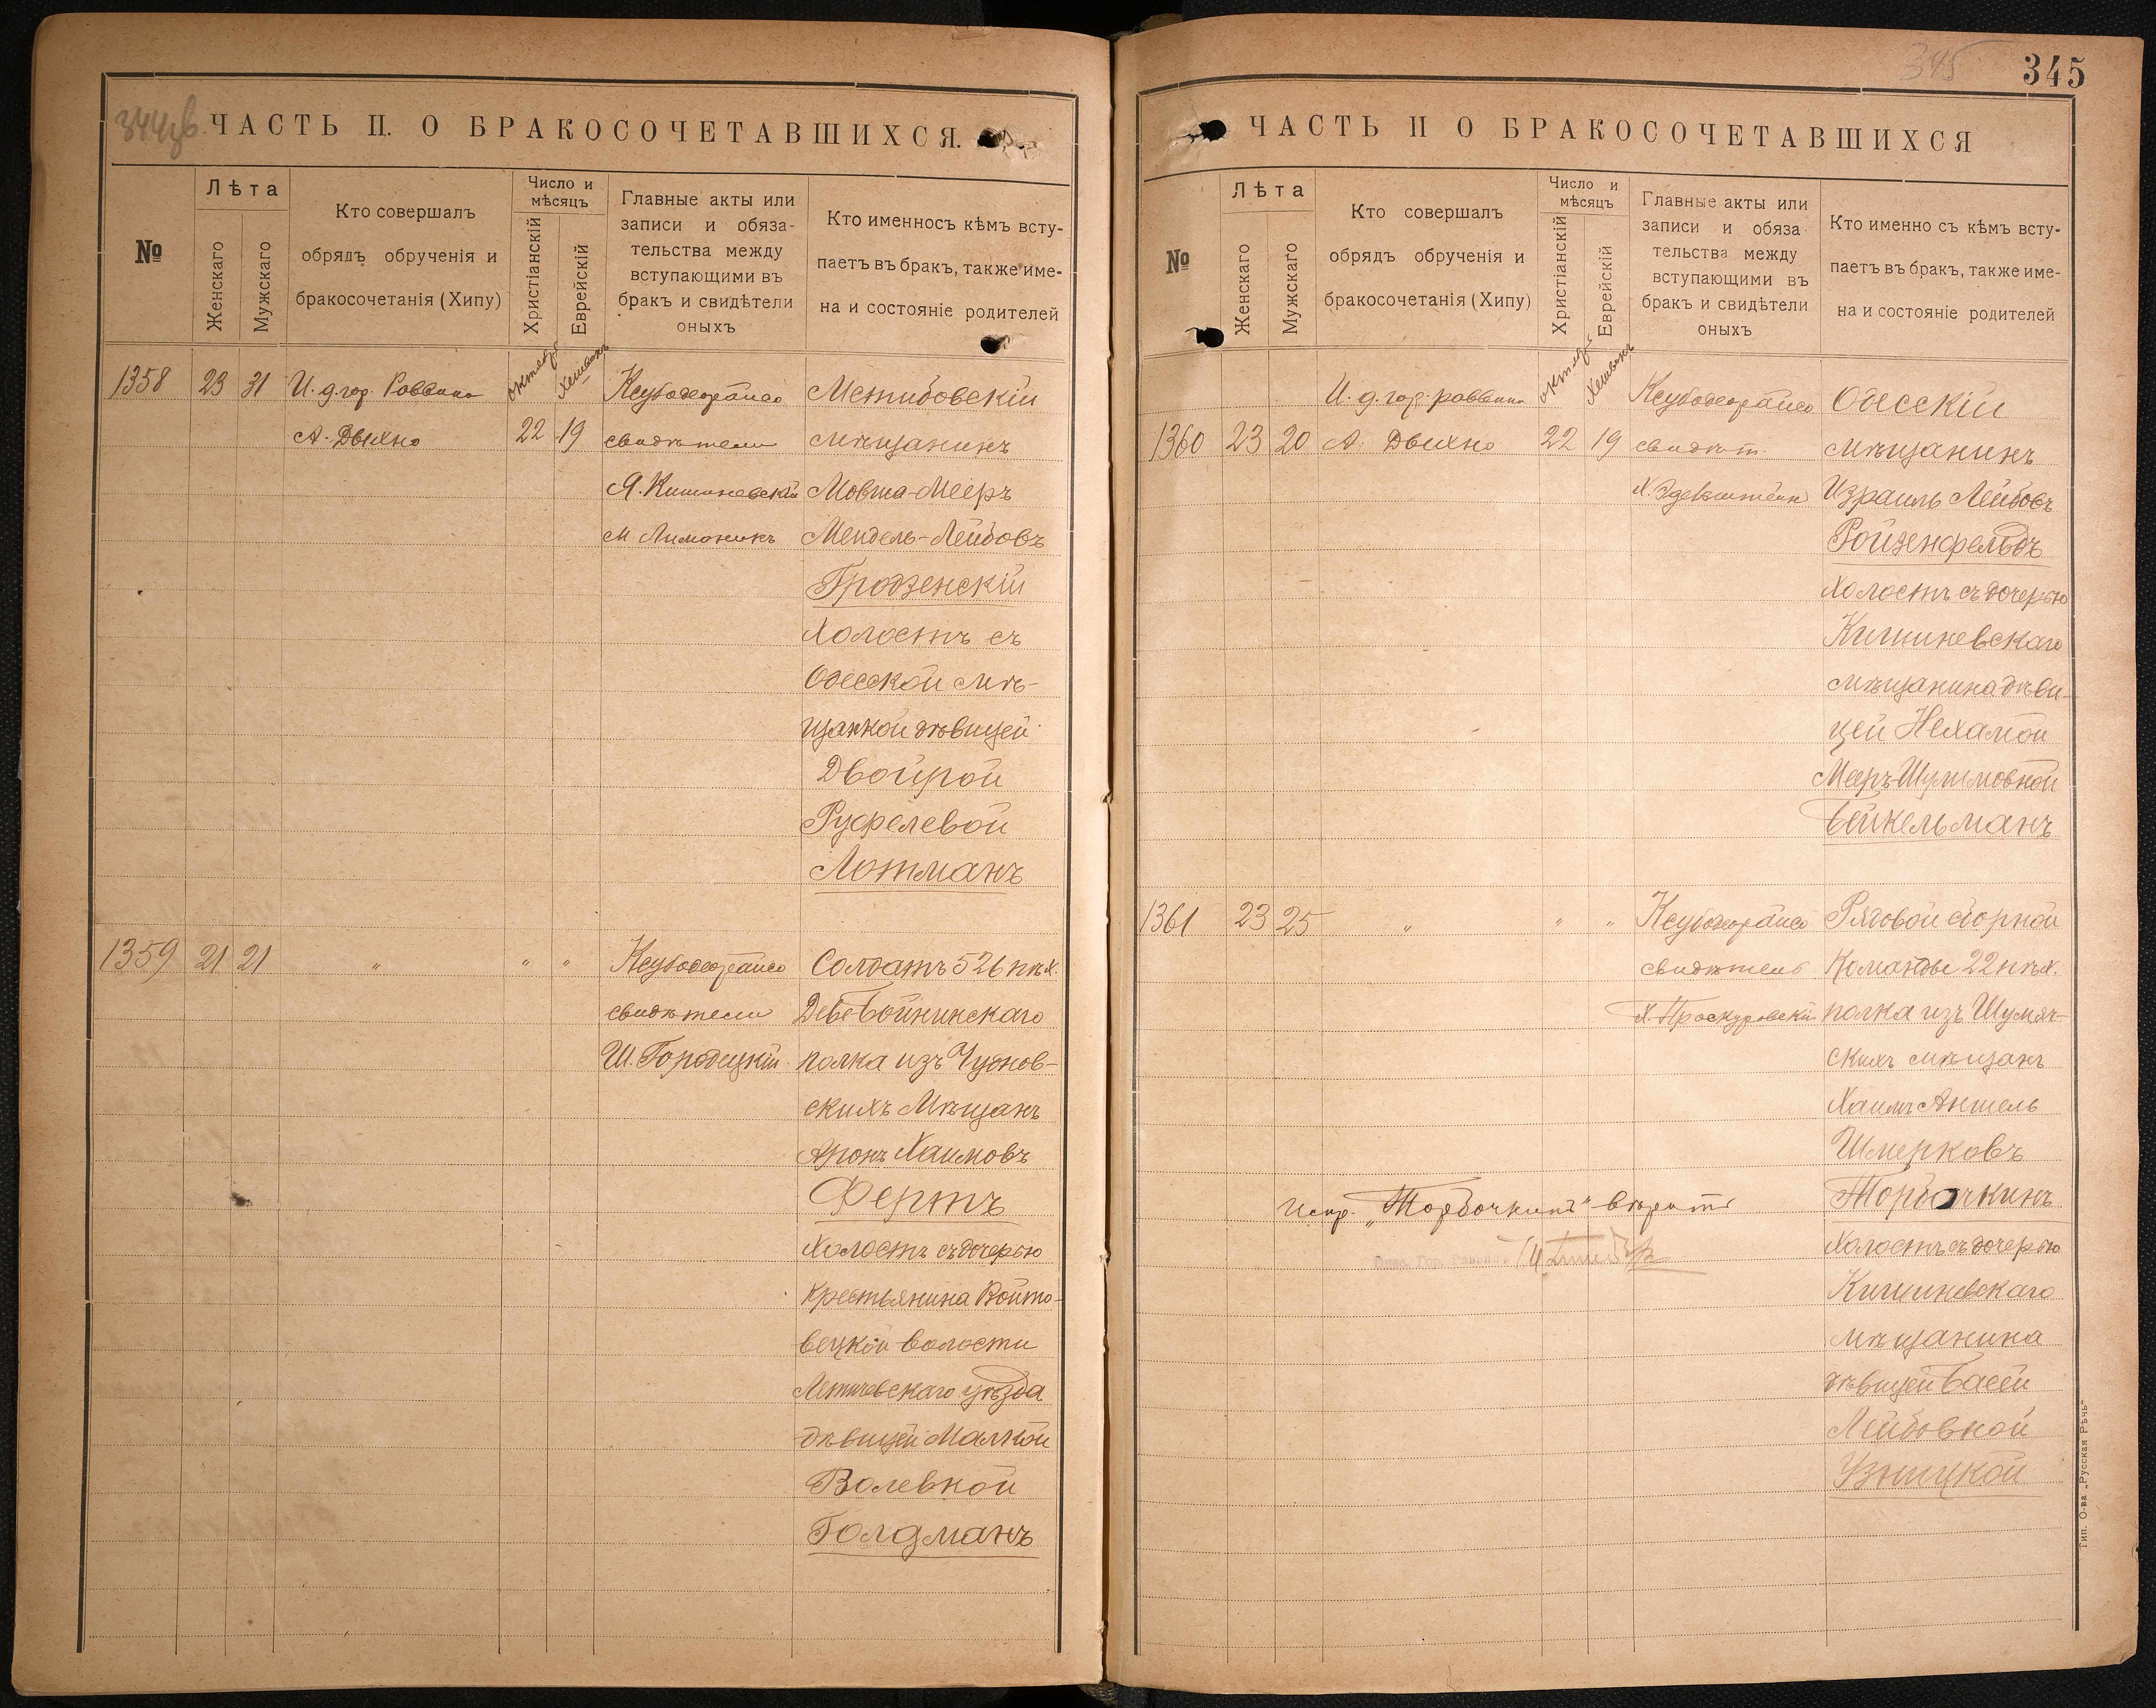 344цв.
ЧАСТЬ II. О БРАКОСОЧЕТАВШИХСЯ.
№
Лѣта
Женскаго
Мужскаго
Кто совершалъ
обрядъ обрученія и
бракосочетанія (Хипу)
Число и
мѣсяцъ
Христіанскій
Еврейскій
Главные акты или
записи и обяза-
тельства между
вступающими въ
бракъ и свидѣтели
оныхъ
Кто именносъ кѣмъ всту-
паетъ въ бракъ, также име-
на и состояніе родителей
1358 23 31 И. д. гор. Раввина
А. Двихно
22 19
свидѣтели
Я. Кишиневскій
М Лимоникъ
Межибовскій
мѣщанинъ
Мовша-Мееръ
Мендель-Лейбовъ
Гродзенскій
Холостъ съ
Одесской мѣ-
щанкой дѣвицей
Двойрой
Руфелевой
Лотманъ
1359 21 21 " " "
свидѣтели
Ш. Городецкій
Солдатъ 526 пѣх.
полка изъ Чуднов-
скихъ Мѣщанъ
Аронъ Хаимовъ
Фертъ
Холостъ съ дочерью
Крестьянина Войто-
вецкой волости
Летичевскаго уѣзда
дѣвицей Малкой
Волевной
Голдманъ
345
345
ЧАСТЬ II О БРАКОСОЧЕТАВШИХСЯ
№
Лѣта
Женскаго
Мужскаго
Кто совершалъ
обрядъ обрученія и
бракосочетанія (Хипу)
Число и
мѣсяцъ
Христіанскій
Еврейскій
Главные акты или
записи и обяза-
тельства между
вступающими въ
бракъ и свидѣтели
оныхъ
Кто именно съ кѣмъ всту-
паетъ въ бракъ, также име-
на и состояніе родителей
И. д. гор. раввина
1360 23 20 А. Двихно 22 19
свидѣт.
Х. Эдельштейн
Одесскій
мѣщанинъ
Израиль Лейбовъ
Ройзенфельдъ
Холостъ съ дочерью
Кишиневскаго
мѣщанина дѣви-
цей Нехамой
Мееръ-Шулимовной
Бейкельманъ
1361 23 25 " " "
свидѣтель
Х. Проскуровскій
Рядовой сборной
Команды 22 пѣх.
полка изъ Шумяч-
скихъ мѣщанъ
Хаимъ Аншель
Шмерковъ
Торбочкинъ
Холостъ съ дочерью
Кишиневскаго
мѣщанина
дѣвицей Басей
Лейбовной
Узницкой
Испр. „Торбочкинъ" вѣрить
Тип. О-ва „Русская Рѣчь"